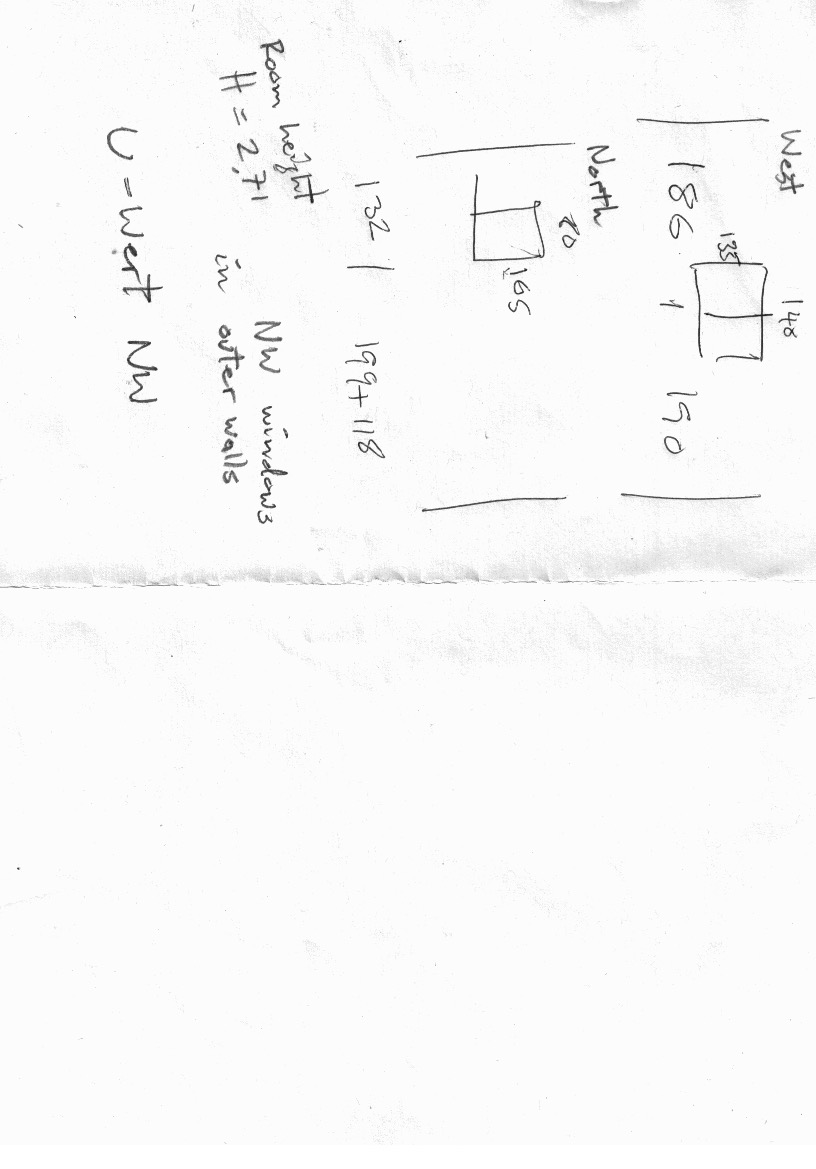 West
148
135
186 1 190
North
80
165
132 | 199+118
Room height
H = 2.71
NW windows
in outer walls
U-Wert NW